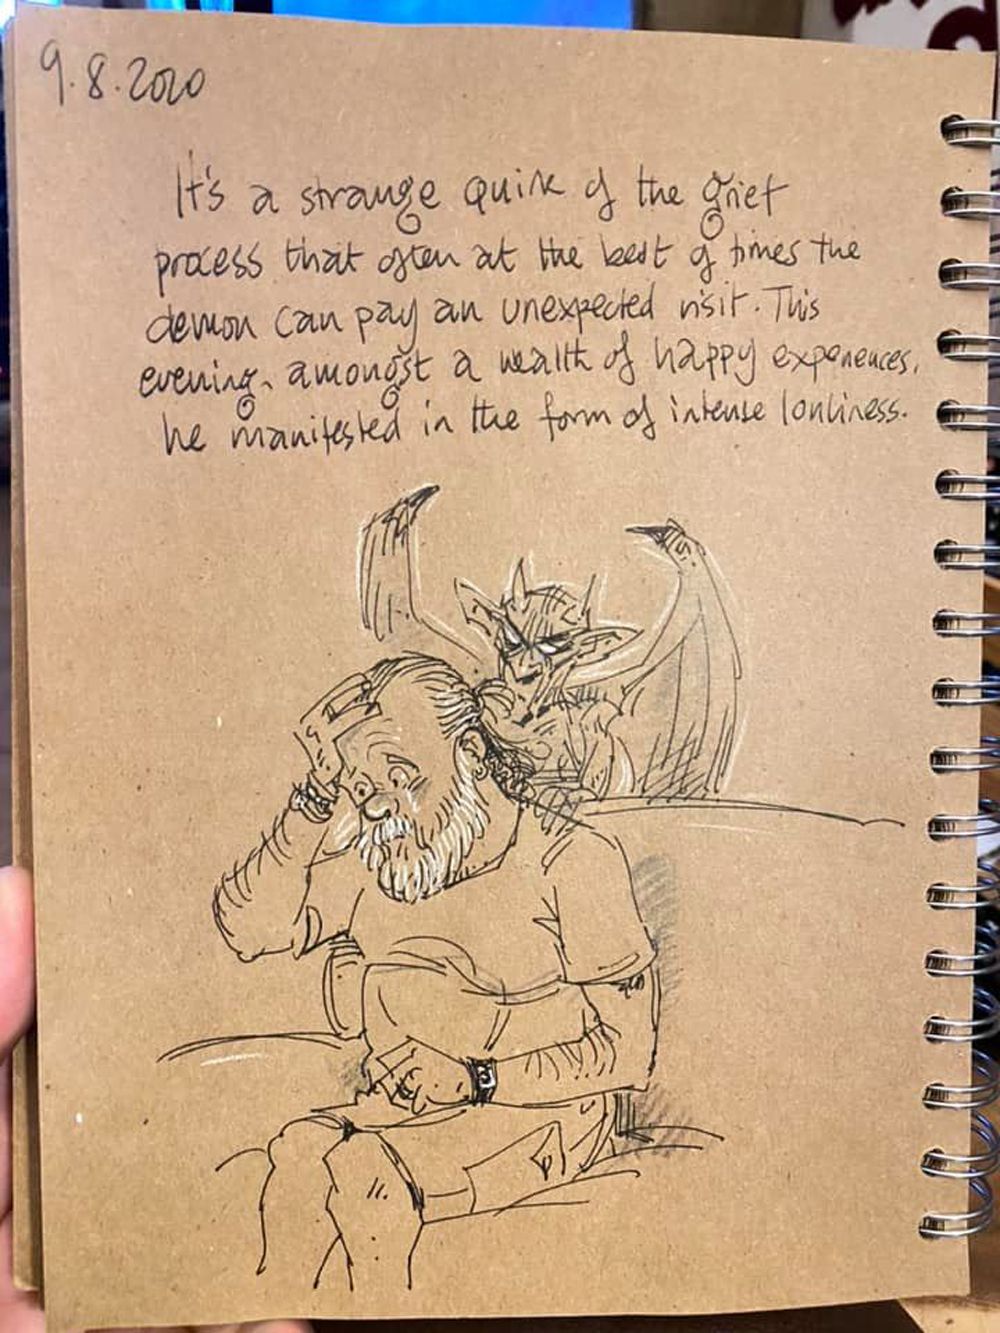 9.8.2020
It's a strange quirk of the grief
process that often at the best of times the
demon can pay an unexpected visit. This
evening, amongst a wealth of happy experiences,
he manifested in the form of intense lonliness.